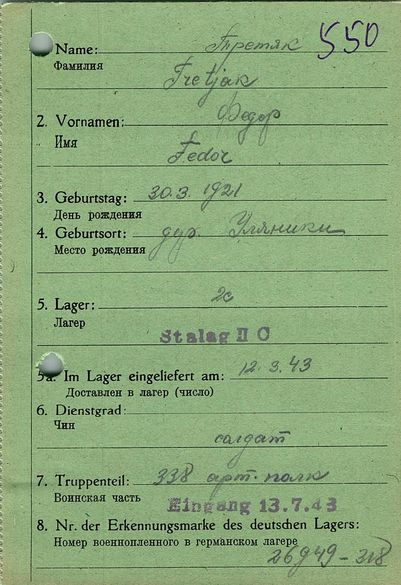 550
Name: Третяк
Фамилия
Tretjak
2. Vornamen: Федор
Имя
Fedor
3. Geburtstag: 30.3.1921
День рождения
4. Geburtsort: дур. Уляники
Место рождения
5. Lager: 2c
Лагер
Stalag II C
5a. Im Lager eingeliefert am: 12.3.43
Доставлен в лагер (число)
6. Dienstgrad:
Чин
солдат
7. Truppenteil: 338 арт. полк
Воинская часть
Eingang 13.7.43
8. Nr. der Erkennungsmarke des deutschen Lagers:
Номер военнопленного в германском лагере
26949-318